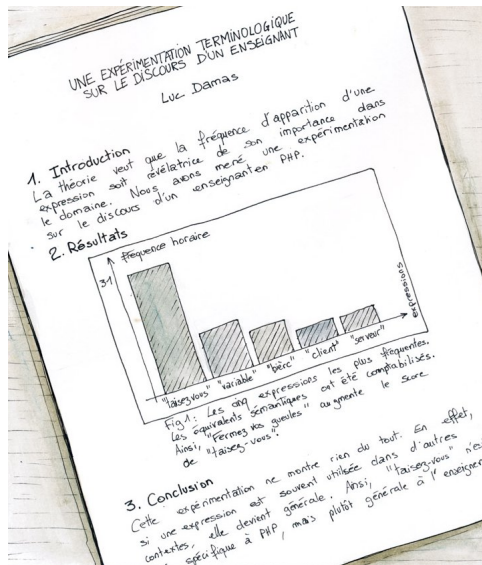 UNE EXPÉRIMENTATION TERMINOLOGIQUE
SUR LE DISCOURS D'UN ENSEIGNANT
Luc Damas
1. Introduction
La théorie veut que la fréquence d'apparition d'une
expression soit révélatrice de son importance dans
le domaine. Nous avons mené une expérimentation
sur le discours d'un enseignant en PHP.
2. Résultats
fréquence horaire
31
expressions
"taisez-vous" "variable" "bière" "client" "serveur"
Fig 1: Les cinq expressions les plus fréquentes.
Les équivalents sémantiques ont été comptabilisés.
Ainsi, "Fermez vos gueules" augmente le score
de "taisez-vous".
3. Conclusion
Cette expérimentation ne montre rien du tout. En effet,
si une expression est souvent utilisée dans d'autres
contextes, elle devient générale. Ainsi, "taisez-vous" n'es
spécifique à PHP, mais plutôt générale à l'enseignem